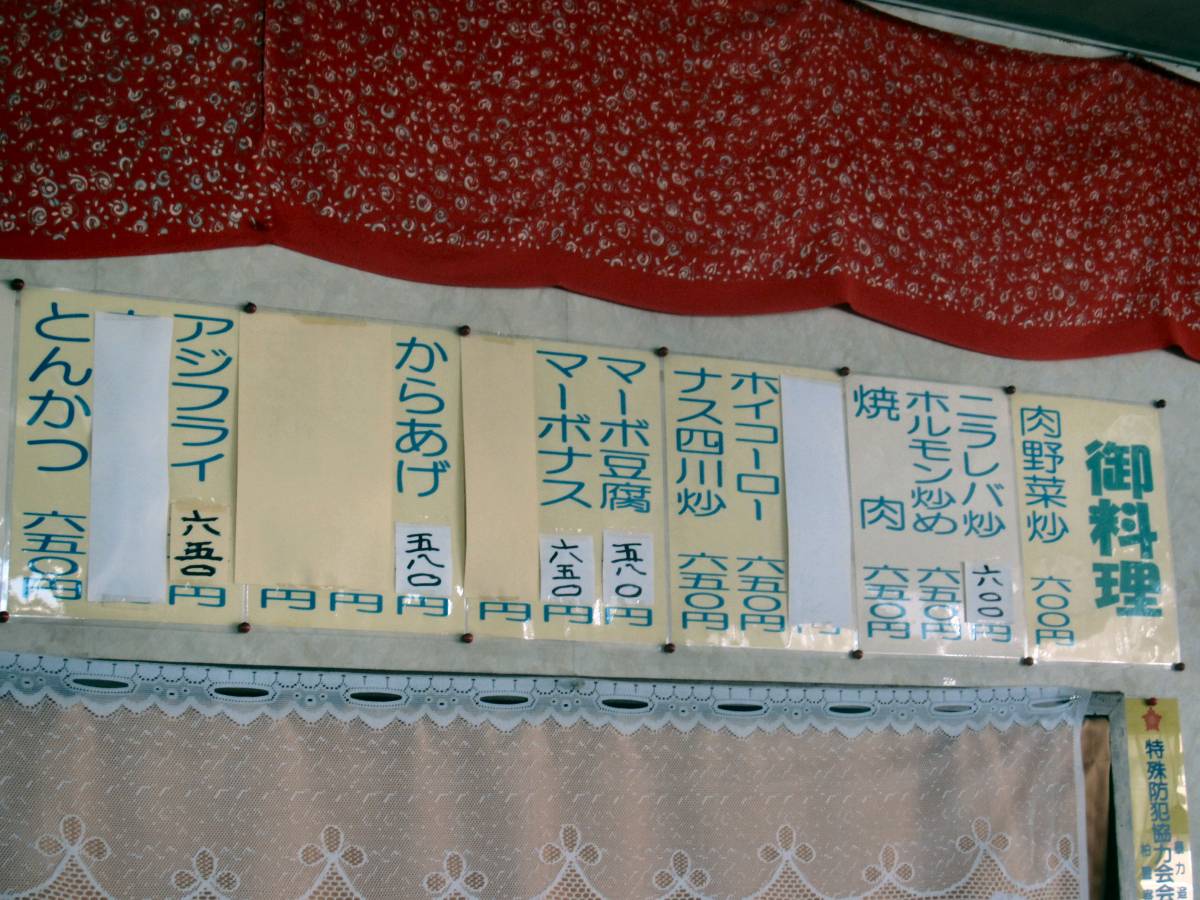 御料理
肉野菜炒 六〇〇円
ニラレバ炒 六〇〇円
ホルモン炒め 六五〇円
焼肉 六五〇円
円
ホイコーロー 六五〇円
ナス四川炒 六五〇円
マーボ豆腐 五八〇円
マーボナス 六五〇円
円
からあげ 五八〇円
円
円
アジフライ 六五〇円
とんかつ 六五〇円
特殊防犯協力会会
暴力追
柏警察